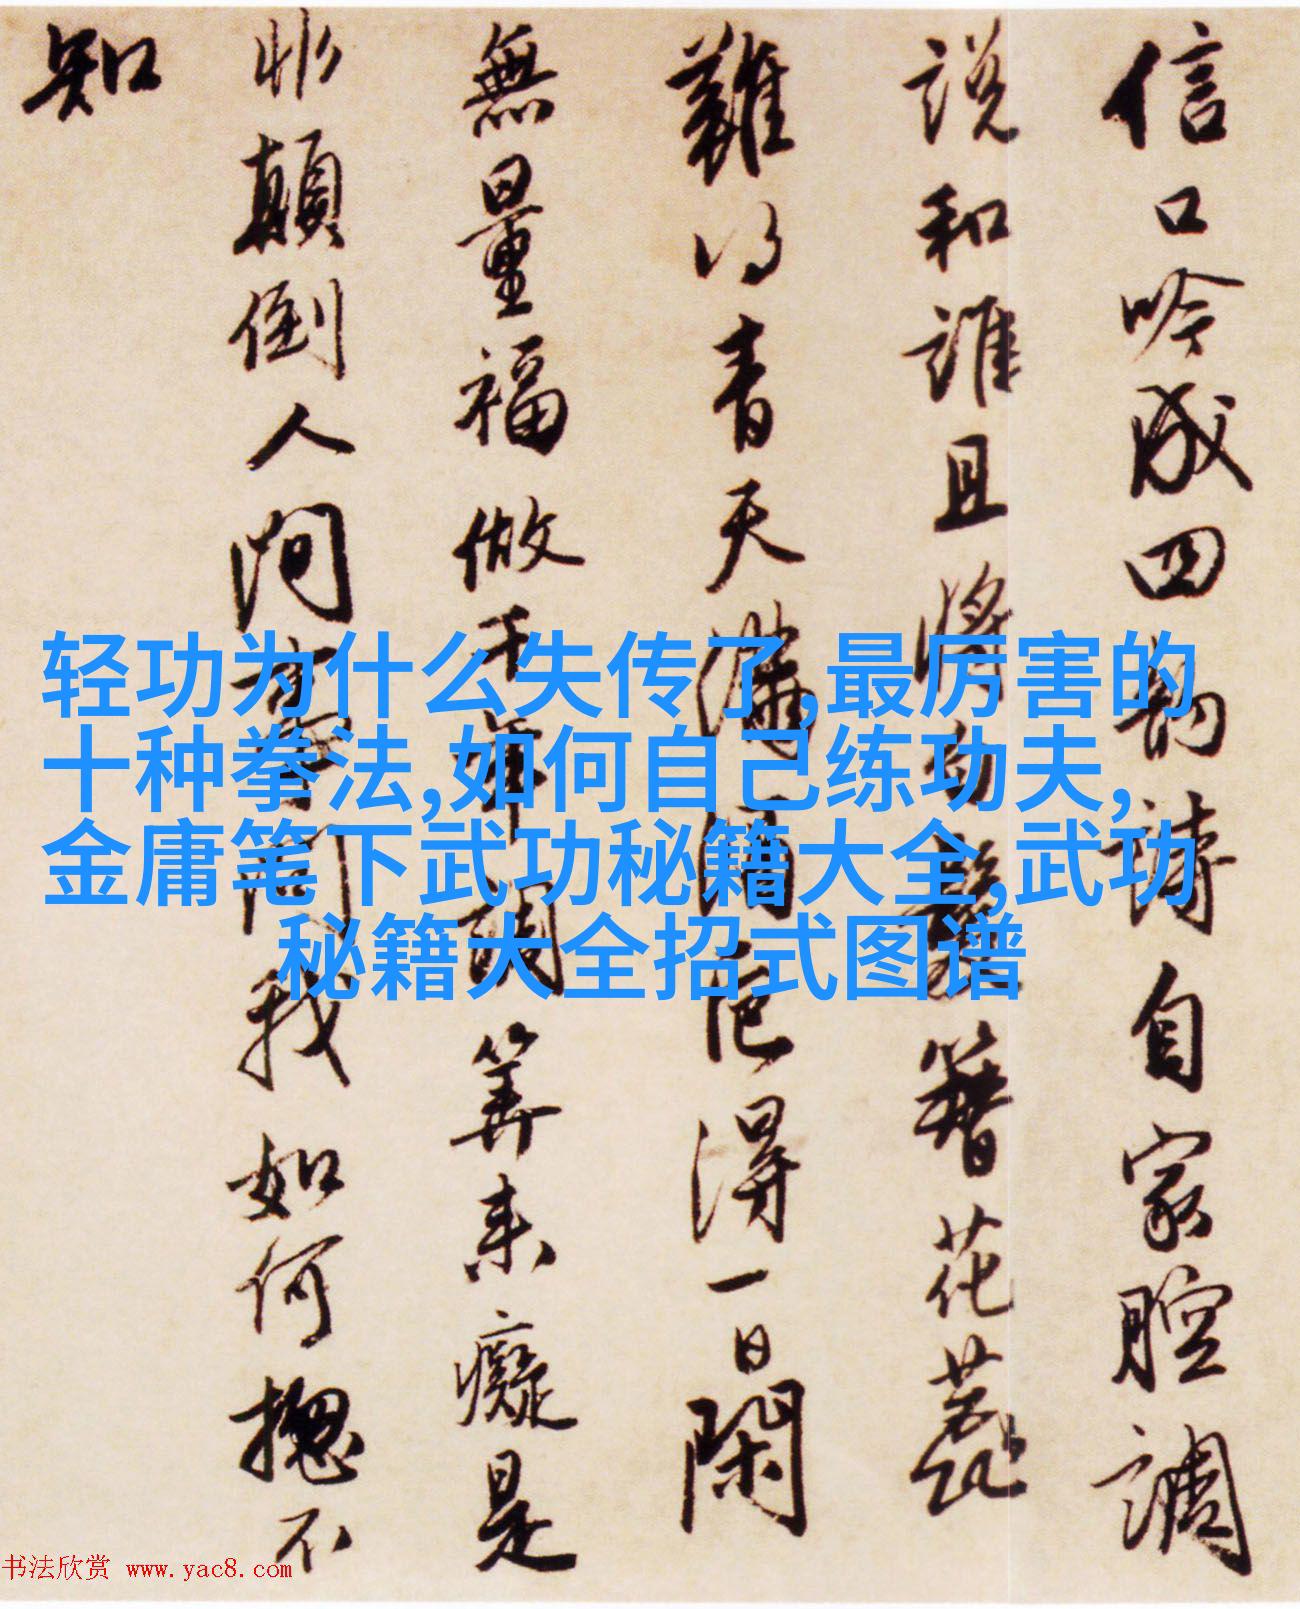 信口吟成四韵诗自家腔调
说和谁且将功髮簪花蕊
难得青天满酒卮得一日闲
無量福做千年調算来癡是
非颠倒人间事问我如何揔不
知
轻功为什么失传了,最厉害的
十种拳法,如何自己练功夫,
金庸笔下武功秘籍大全,武功
秘籍大全招式图谱
书法欣赏 www.yac8.com